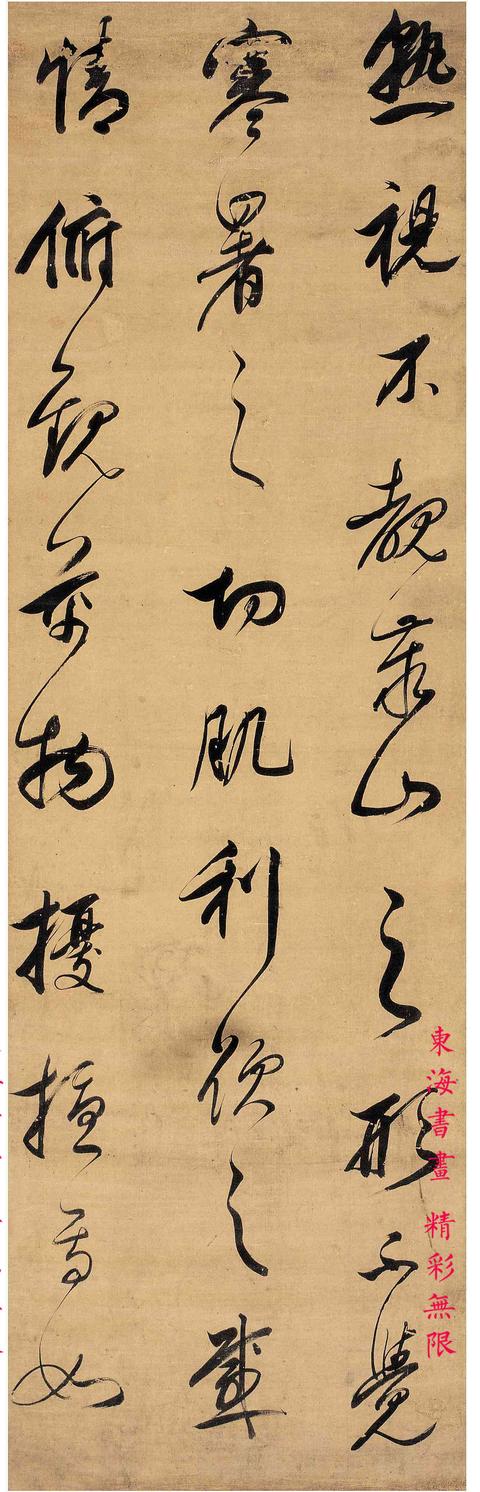 熟視不覩泰山之形不覺
寒暑之切肌利欲之感
情俯觀萬物擾擾焉如
東海書畫 精彩無限